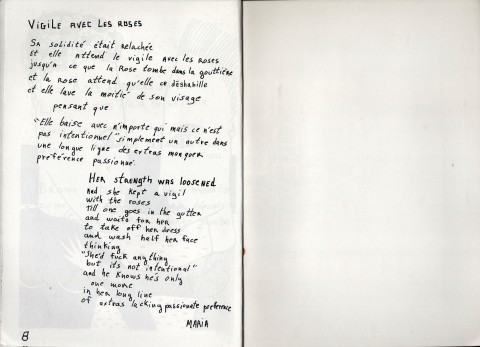 VIGILE AVEC LES ROSES
SA solidité était relachée
Et elle attend le vigile avec les roses
jusqu'a ce que la Rose tombe dans la gouttière
et la rose attend qu'elle ce déshabille
et elle lave la moitié de son visage
pensant que
"Elle baise avec n'importe qui mais ce n'est
pas intentionnel" simplement un autre dans
une longue ligne des extras manquer
préférence passionné.
HER STRENGTH WAS LOOSENED
And she kept a vigil
with the roses
Till one goes in the gutter
and waits for her
to take off her dress
and wash half her face
thinking
"She'd fuck anything
but it's not intentional"
and he knows he's only
one more
in her long line
of extras lacking passionate preference
MARIA
8